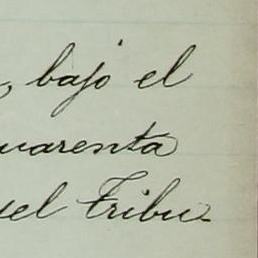 , bajo el
uarenta
uel Tribu-